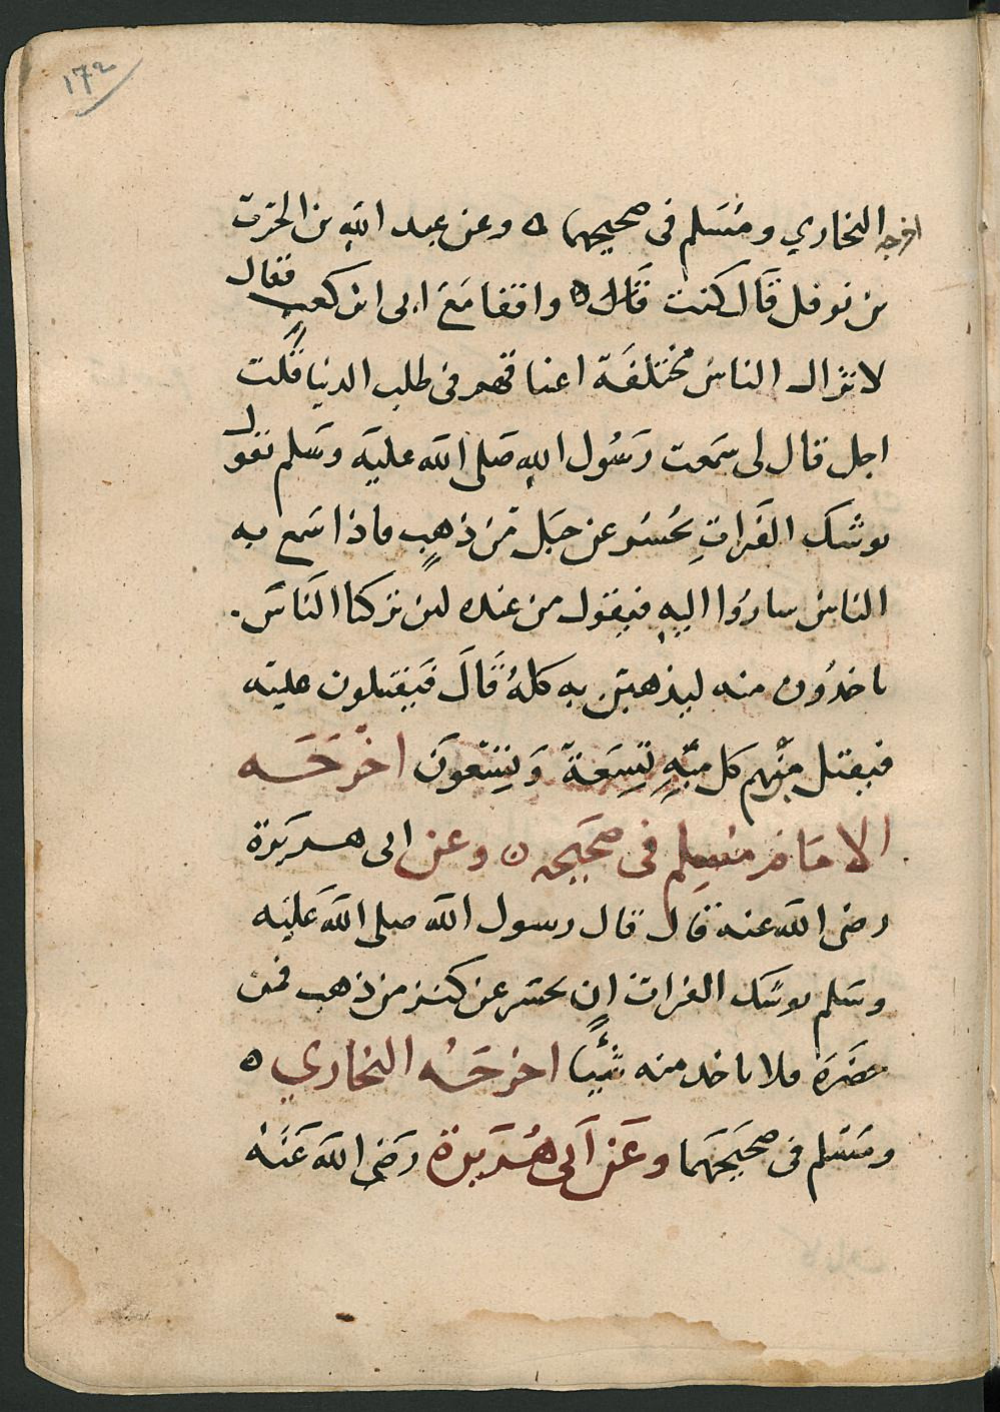 ١٧٢
اخرجه البخاري ومسلم فى صحيحهما ه وعن عبد الله بن الحرث
بن نوفل قال كنت قال ه واقفا مع ابى ابن كعب فقال
لا تزال الناس مختلفة اعناقهم فى طلب الدنيا قلت
اجل قال لى سمعت رسول الله صلى الله عليه وسلم تقول
يوشك الفرات يحسر عن جبل من ذهب فاذا سمع به
الناس ساروا اليه فيقول من عنده لين تركنا الناس .
ياخذون منه ليذهبن به كله قال فيقتلون عليه
فيقتل منهم كل مية تسعة وتسعون اخرجه
الامام مسلم فى صحيحه ه وعن ابى هريرة
رضى الله عنه قال قال رسول الله صلى الله عليه
وسلم يوشك الفرات ان يحسر عن كنز من ذهب فمن
حضره فلا ياخد منه شيئا اخرجه البخاري ه
ومسلم فى صحيحهما وعن ابى هريرة رضى الله عنه